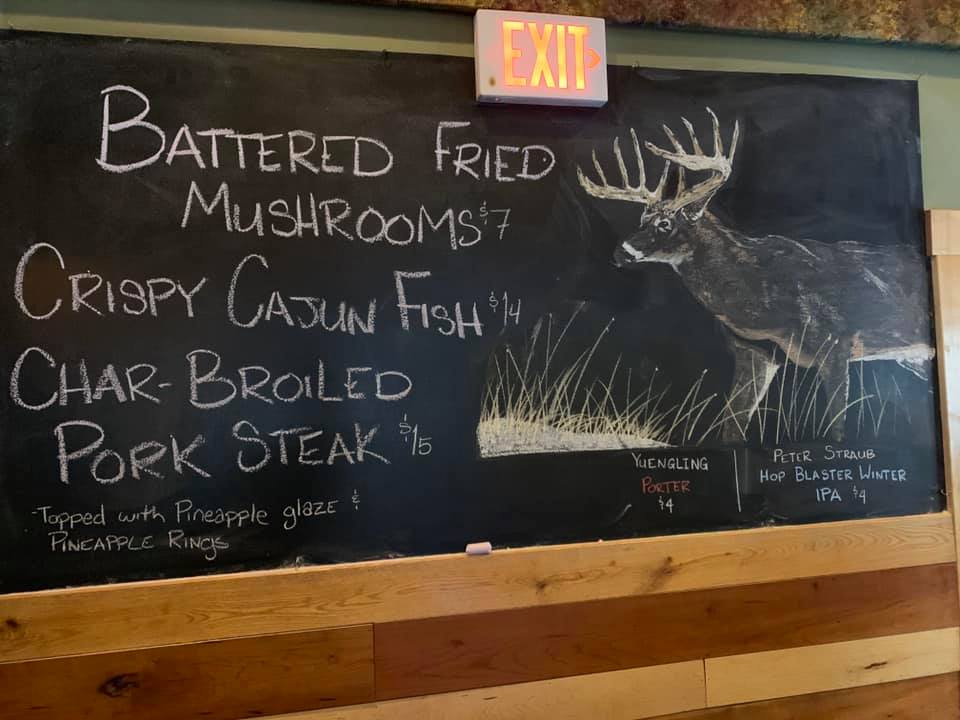 EXIT
BATTERED FRIED
MUSHROOMS $7
CRISPY CAJUN FISH $14
CHAR-BROILED
PORK STEAK $15
-Topped with Pineapple glaze &
PINEAPPLE RINGS
YUENGLING
PORTER
$4
PETER STRAUB
HOP BLASTER WINTER
IPA $4